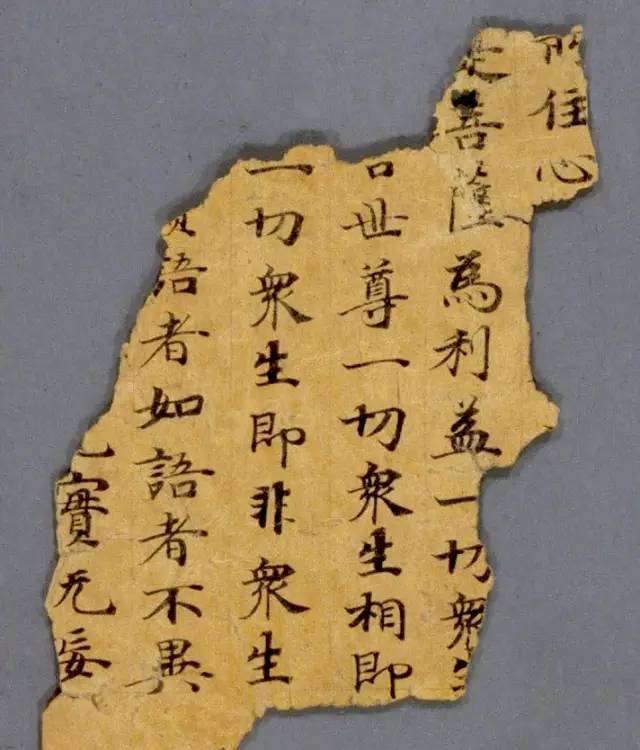 所住心
是菩薩為利益一切衆生
世尊一切衆生相即
一切衆生即非衆生
語者如語者不異
實无妄